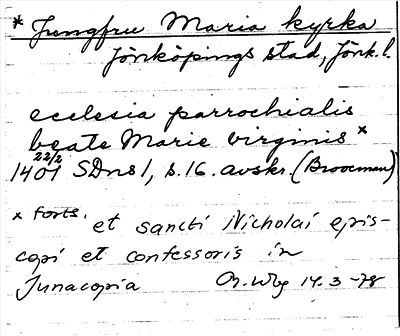 * Jungfru Maria kyrka
Jönköpings stad, Jönk. l.
ecclesia parrochialis
beate Marie virginis x
1401 22/2 SDns 1, s. 16. avskr. (Broocman)
x forts. et sancti Nicholai epis-
copi et confessoris in
Junacopia 14.3 -78